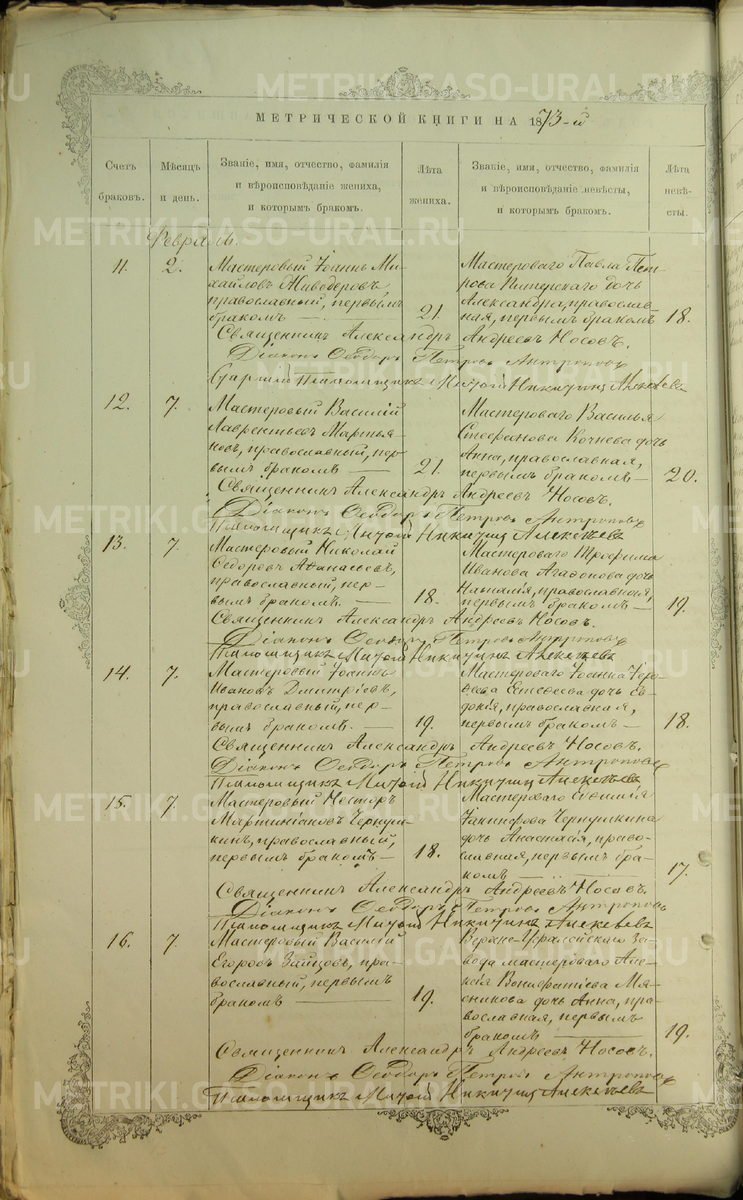 МЕТРИЧЕСКОЙ КНИГИ НА 1873-й
Счетъ браковъ.
Мѣсяцъ и день.
Званіе, имя, отчество, фамилія и вѣроисповѣданіе жениха, и которымъ бракомъ.
Лѣта жениха.
Званіе, имя, отчество, фамилія и вѣроисповѣданіе невѣсты, и которымъ бракомъ.
Лѣта невѣсты.
Февраль.
11. 2.
Мастеровый Іоаннъ Ми-
хайловъ Живодеровъ
православный, первымъ
бракомъ — 21.
Мастероваго Павла Пет-
рова дочь
Александра, православ-
ная, первымъ бракомъ 18.
Священникъ Александръ Андреевъ Носовъ.
Діаконъ Ѳеодоръ Петровъ Антроповъ
12. 7.
Мастеровый Василій
Лаврентьевъ Мартья-
новъ, православный, пер-
вымъ бракомъ — 21.
Мастероваго Василья
Стефанова Кочнева дочь
Анна, православная,
первымъ бракомъ — 20.
Священникъ Александръ Андреевъ Носовъ.
Діаконъ Ѳеодоръ Петровъ Антроповъ
13. 7.
Мастеровый Николай
Ѳедоровъ Аѳанасьевъ,
православный, пер-
вымъ бракомъ. — 18.
Мастероваго Трофима
Иванова Агафонова дочь
православная,
первымъ бракомъ — 19.
Священникъ Александръ Андреевъ Носовъ.
Діаконъ Ѳеодоръ Петровъ Антроповъ
14. 7.
Мастеровый Іоаннъ
Ивановъ Дмитріевъ,
православный, пер-
вымъ бракомъ. — 19.
Мастероваго Іоанна
дочь Ев-
докія, православная,
первымъ бракомъ — 18.
Священникъ Александръ Андреевъ Носовъ.
Діаконъ Ѳеодоръ Петровъ Антроповъ
15. 7.
Мастеровый Несторъ
Мартиніановъ Чернуш-
кинъ, православный,
первымъ бракомъ — 18.
Мастероваго Евфимія
Чернушкина
дочь Анастасія, право-
славная, первымъ бра-
комъ — 17.
Священникъ Александръ Андреевъ Носовъ.
Діаконъ Ѳеодоръ Петровъ Антроповъ
16. 7.
Мастеровый Василій
Егоровъ Зайцовъ, пра-
вославный, первымъ
бракомъ — 19.
Верхне-Уфалейскаго за-
вода мастероваго Але-
ксія Вонифатіева Мя-
сникова дочь Анна, пра-
вославная, первымъ
бракомъ — 19.
Священникъ Александръ Андреевъ Носовъ.
Діаконъ Ѳеодоръ Петровъ Антроповъ
METRIKI.GASO-URAL.RU